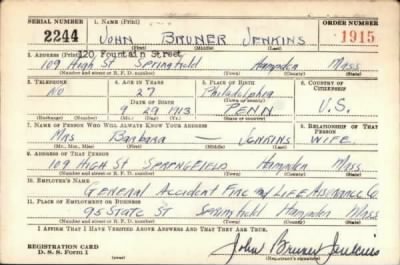 SERIAL NUMBER 1. NAME (Print) ORDER NUMBER
2244 JOHN BRUNER JENKINS 1915
(First) (Middle) (Last)
120 Fountain Street
2. ADDRESS (Print)
109 High St Springfield Hampden Mass
(Number and street or R. F. D. number) (Town) (County) (State)
3. TELEPHONE 4. AGE IN YEARS 5. PLACE OF BIRTH 6. COUNTRY OF CITIZENSHIP
No 27 Philadelphia
DATE OF BIRTH (Town or county)
9 29 1913 PENN U.S.
(Mo.) (Day) (Yr.) (State or country)
7. NAME OF PERSON WHO WILL ALWAYS KNOW YOUR ADDRESS 8. RELATIONSHIP OF THAT PERSON
Mrs Barbara — JENKINS WIFE
(Mr., Mrs., Miss) (First) (Middle) (Last)
9. ADDRESS OF THAT PERSON
109 HIGH St SPRINGFIELD Hampden Mass
(Number and street or R. F. D. number) (Town) (County) (State)
10. EMPLOYER'S NAME
GENERAL ACCIDENT FIRE and LIFE ASSURANCE Co.
11. PLACE OF EMPLOYMENT OR BUSINESS
95 STATE St Springfield Hampden Mass
(Number and street or R. F. D. number) (Town) (County) (State)
I AFFIRM THAT I HAVE VERIFIED ABOVE ANSWERS AND THAT THEY ARE TRUE.
REGISTRATION CARD
D. S. S. Form 1 John Bruner Jenkins
(Registrant's signature)